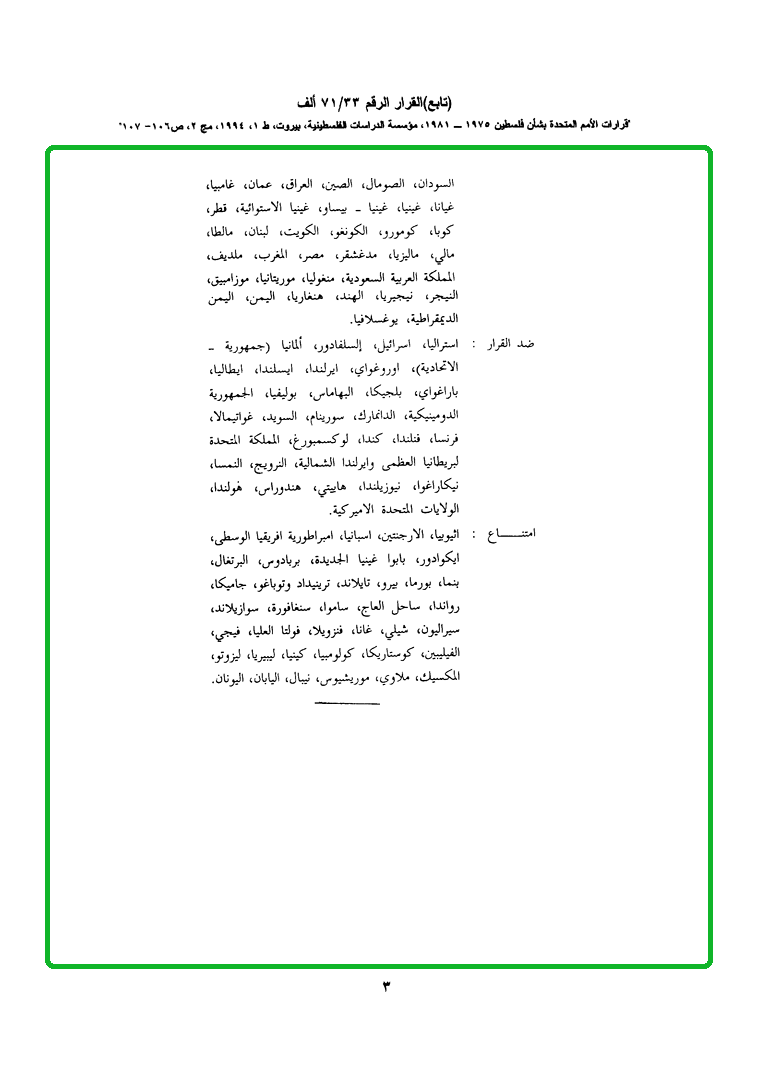 (تابع)القرار الرقم ٧١/٣٣ ألف
"قرارات الأمم المتحدة بشأن فلسطين ١٩٧٥ – ١٩٨١، مؤسسة الدراسات الفلسطينية، بيروت، ط ١، ١٩٩٤، مج ٢، ص١٠٦- ١٠٧"
السودان، الصومال، الصين، العراق، عمان، غامبيا،
غيانا، غينيا، غينيا ـ بيساو، غينيا الاستوائية، قطر،
كوبا، كومورو، الكونغو، الكويت، لبنان، مالطا،
مالي، ماليزيا، مدغشقر، مصر، المغرب، ملديف،
المملكة العربية السعودية، منغوليا، موريتانيا، موزامبيق،
النيجر، نيجيريا، الهند، هنغاريا، اليمن، اليمن
الديمقراطية، يوغسلافيا.
ضد القرار : استراليا، اسرائيل، إلسلفادور، ألمانيا (جمهورية ـ
الاتحادية)، اوروغواي، ايرلندا، ايسلندا، ايطاليا،
باراغواي، بلجيكا، البهاماس، بوليفيا، الجمهورية
الدومينيكية، الدانمارك، سورينام، السويد، غواتيمالا،
فرنسا، فنلندا، كندا، لوكسمبورغ، المملكة المتحدة
لبريطانيا العظمى وايرلندا الشمالية، النرويج، النمسا،
نيكاراغوا، نيوزيلندا، هاييتي، هندوراس، هولندا،
الولايات المتحدة الاميركية.
امتنـــــاع : اثيوبيا، الارجنتين، اسبانيا، امبراطورية افريقيا الوسطى،
ايكوادور، بابوا غينيا الجديدة، بربادوس، البرتغال،
بنما، بورما، بيرو، تايلاند، ترينيداد وتوباغو، جاميكا،
رواندا، ساحل العاج، ساموا، سنغافورة، سوازيلاند،
سيراليون، شيلي، غانا، فنزويلا، فولتا العليا، فيجي،
الفيليبين، كوستاريكا، كولومبيا، كينيا، ليبيريا، ليزوتو،
المكسيك، ملاوي، موريشيوس، نيبال، اليابان، اليونان.
٣